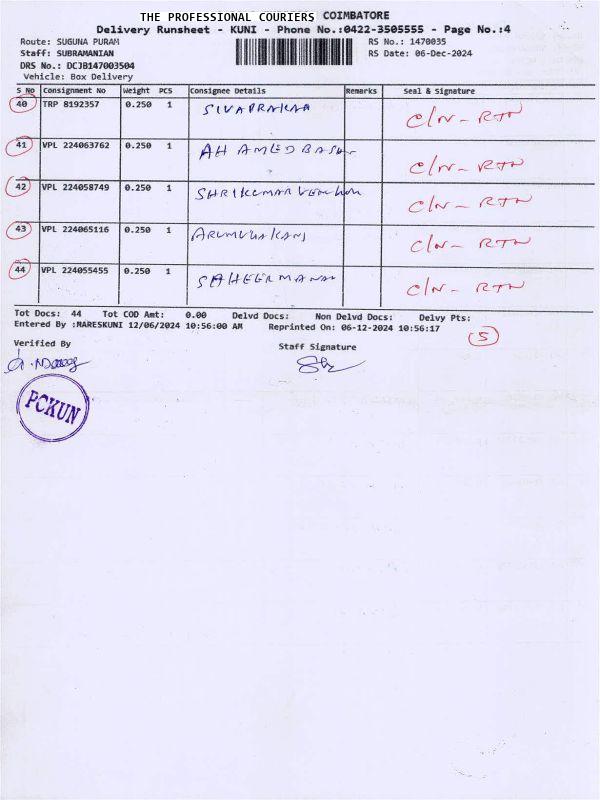 THE PROFESSIONAL COURIERS COIMBATORE
Delivery Runsheet - KUNI - Phone No.:0422-3505555 - Page No.:4
Route: SUGUNA PURAM RS No.: 1470035
Staff: SUBRAMANIAN RS Date: 06-Dec-2024
DRS No.: DCJB147003504
Vehicle: Box Delivery
S No Consignment No Weight PCS Consignee Details Remarks Seal & Signature
40 TRP 8192357 0.250 1 SIVAPRAKAA C/N - RTN
41 VPL 224063762 0.250 1 AHAMEDBASH C/N - RTN
42 VPL 224058749 0.250 1 SHRIKUMAR C/N - RTN
43 VPL 224065116 0.250 1 ARUMUGAKANI C/N - RTN
44 VPL 224055455 0.250 1 SAHEERMANA C/N - RTN
Tot Docs: 44 Tot COD Amt: 0.00 Delvd Docs: Non Delvd Docs: Delvy Pts:
Entered By :MARESKUNI 12/06/2024 10:56:00 AM Reprinted On: 06-12-2024 10:56:17
5
Verified By Staff Signature
PCKUN